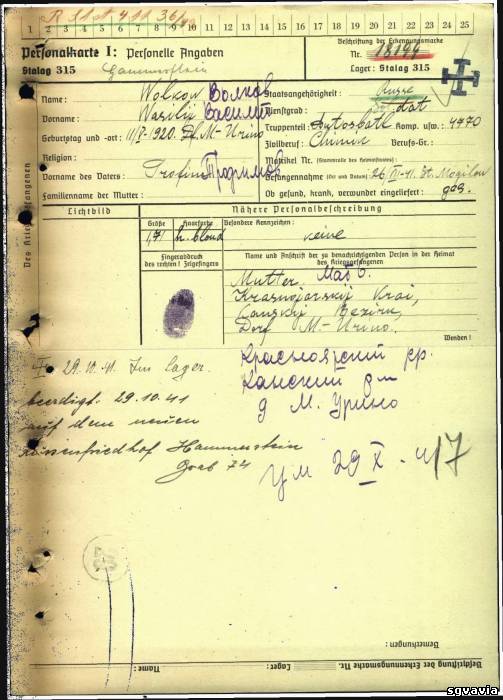 1 2 3 4 5 6 7 8 9 10 11 12 13 14 15 16 17 18 19 20 21 22 23 24 25
Personalkarte I: Personelle Angaben
Beschriftung der Erkennungsmarke
Stalag 315
Nr. 18199
Lager: Stalag 315
Des Kriegsgefangenen
Name: Wolkow Волков
Staatsangehörigkeit: Russe
Vorname: Wasilij Василий
Dienstgrad: Soldat
Geburtstag und -ort: 1920. Df. M-Urino
Truppenteil: Komp. usw.: 4770
Religion:
Zivilberuf: Berufs-Gr.:
Matrikel Nr. (Stammrolle des Heimatstaates):
Vorname des Vaters: Trofim
Gefangennahme (Ort und Datum): 26. -41. Mogilow
Familienname der Mutter:
Ob gesund, krank, verwundet eingeliefert: ges.
Lichtbild
Nähere Personalbeschreibung
Größe Haarfarbe Besondere Kennzeichen:
1,71 h. blond keine
Fingerabdruck
des rechten! Zeigefingers
Name und Anschrift der zu benachrichtigenden Person in der Heimat
des Kriegsgefangenen
Mutter. Мать
Krasnojarskij Krai,
Kanskij Bezirk,
Dorf M-Urino.
Wenden!
29.10.41 Im Lager.
Красноярский кр.
beerdigt 29.10.41
Канский
auf dem neuen
д М. Урино
Russenfriedhof Hammerstein
Grab 74
ум 29 X - 41
Bemerkungen:
Name:
Lager:
Beschriftung der Erkennungsmarke Nr.
sgvavia